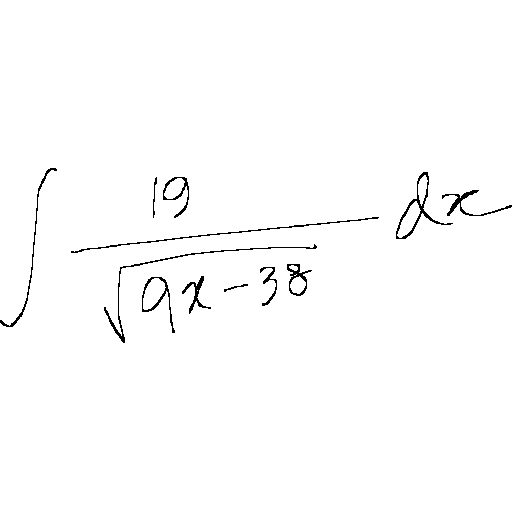 ∫ 19 / √(9x - 38) dx